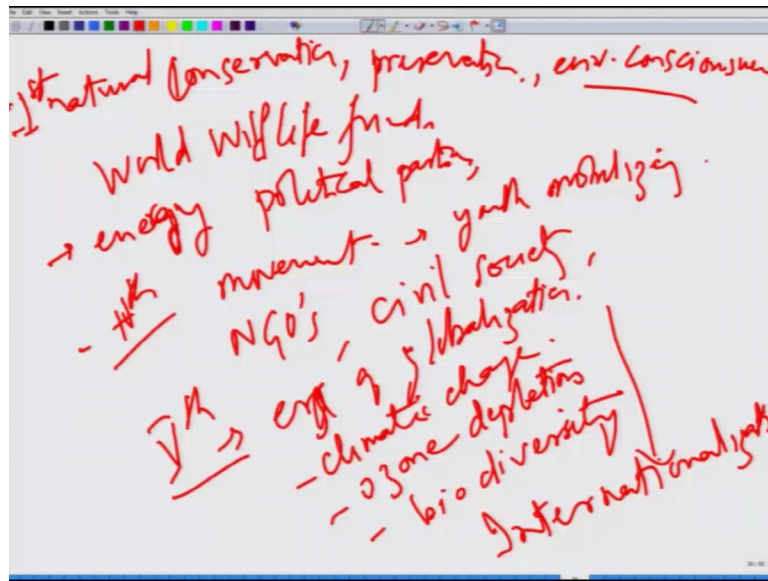 - 1st natural conservation, preservation, env. consciousne
World Wild life fund.
→ energy political parties,
movement → youth mobilizing.
- IVth
NGO's, civil society,
Vth → era of globalization.
- climatic change.
- ozone depletion
- bio diversity
Internationalizat